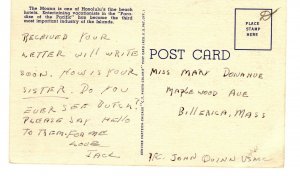 The Moana is one of Honolulu's fine beach
hotels. Entertaining vacationists in the "Para-
dise of the Pacific" has become the third
most important industry of the Islands.
RECEIVED YOUR
LETTER WILL WRITE
SOON. HOW IS YOUR
SISTER. DO YOU
EVER SEE DUTCH?
PLEASE SAY HELLO
TO THEM FOR ME
LOVE
JACK
POST CARD
PLACE
STAMP
HERE
MISS MARY DONAHUE
MAPLEWOOD AVE
BILLERICA, MASS
JOHN QUINN USMC